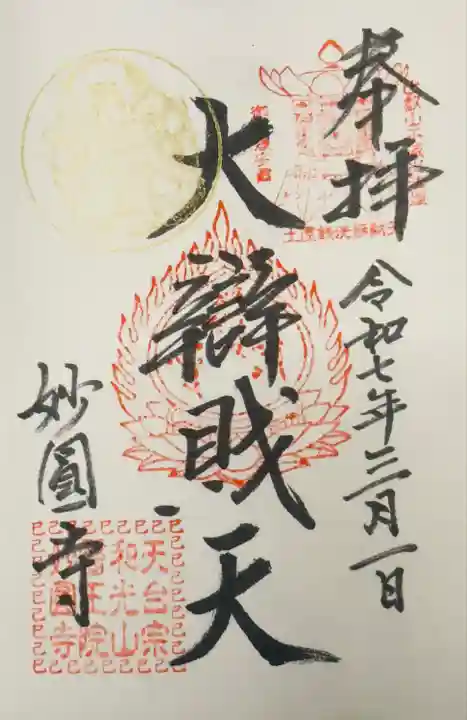 奉拝
令和七年三月一日
大辯財天
妙圓寺
天台宗
和光山